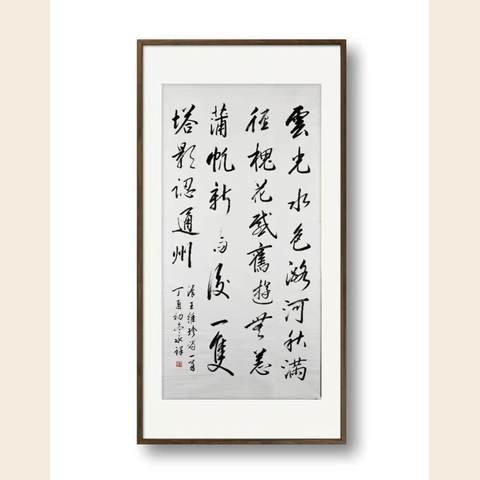 雲光水色潞河秋滿
径槐花感舊遊無恙
蒲帆新雨後一隻
塔影認通州
清王維珍詩一首
丁酉初冬永祥